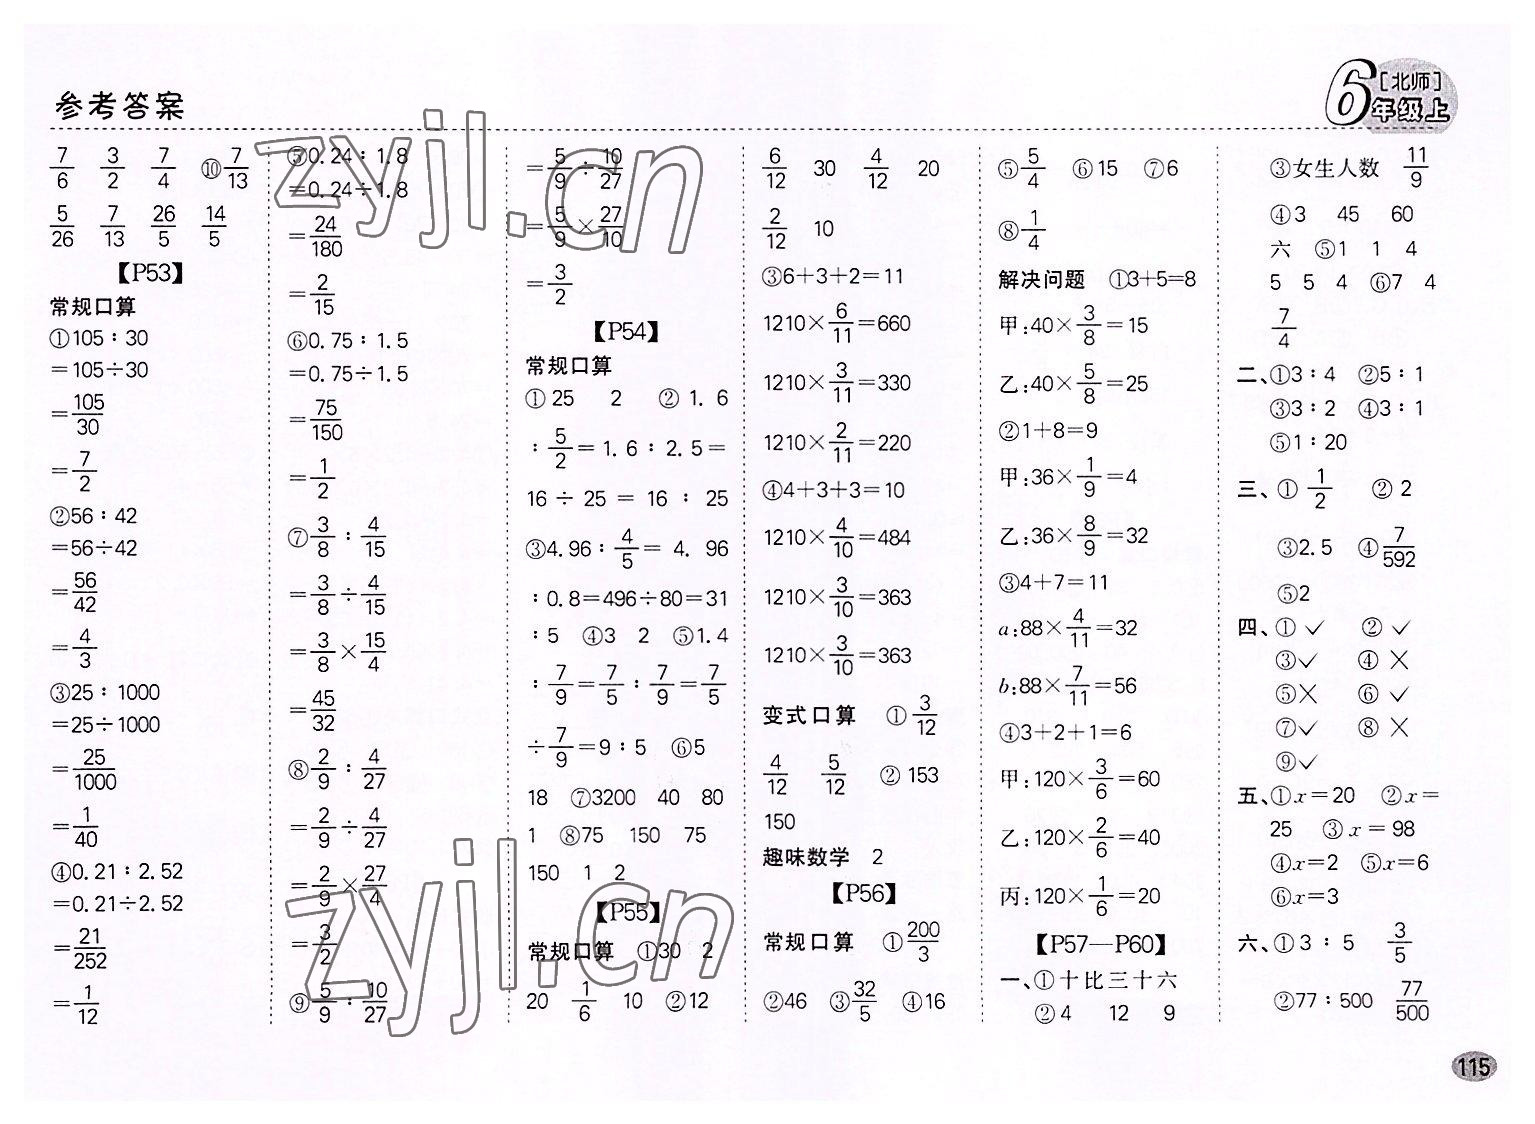 参考答案
6[北师]
年级上
7/6 3/2 7/4 ⑩7/13
5/26 7/13 26/5 14/5
【P53】
常规口算
①105∶30
=105÷30
=105/30
=7/2
②56∶42
=56÷42
=56/42
=4/3
③25∶1000
=25÷1000
=25/1000
=1/40
④0.21∶2.52
=0.21÷2.52
=21/252
=1/12
⑤0.24∶1.8
=0.24÷1.8
=24/180
=2/15
⑥0.75∶1.5
=0.75÷1.5
=75/150
=1/2
⑦3/8∶4/15
=3/8÷4/15
=3/8×15/4
=45/32
⑧2/9∶4/27
=2/9÷4/27
=2/9×27/4
=3/2
⑨5/9∶10/27
=5/9÷10/27
=5/9×27/10
=3/2
【P54】
常规口算
①25 2 ②1.6
∶5/2=1.6∶2.5=
16÷25=16∶25
③4.96∶4/5=4.96
∶0.8=496÷80=31
∶5 ④3 2 ⑤1.4
∶7/9=7/5∶7/9=7/5
÷7/9=9∶5 ⑥5
18 ⑦3200 40 80
1 ⑧75 150 75
150 1 2
【P55】
常规口算 ①30 2
20 1/6 10 ②12
6/12 30 4/12 20
2/12 10
③6+3+2=11
1210×6/11=660
1210×3/11=330
1210×2/11=220
④4+3+3=10
1210×4/10=484
1210×3/10=363
1210×3/10=363
变式口算 ①3/12
4/12 5/12 ②153
150
趣味数学 2
【P56】
常规口算 ①200/3
②46 ③32/5 ④16
⑤5/4 ⑥15 ⑦6
⑧1/4
解决问题 ①3+5=8
甲:40×3/8=15
乙:40×5/8=25
②1+8=9
甲:36×1/9=4
乙:36×8/9=32
③4+7=11
a:88×4/11=32
b:88×7/11=56
④3+2+1=6
甲:120×3/6=60
乙:120×2/6=40
丙:120×1/6=20
【P57—P60】
一、①十比三十六
②4 12 9
③女生人数 11/9
④3 45 60
六 ⑤1 1 4
5 5 4 ⑥7 4
7/4
二、①3∶4 ②5∶1
③3∶2 ④3∶1
⑤1∶20
三、①1/2 ②2
③2.5 ④7/592
⑤2
四、①✓ ②✓
③✓ ④×
⑤× ⑥✓
⑦✓ ⑧×
⑨✓
五、①x=20 ②x=
25 ③x=98
④x=2 ⑤x=6
⑥x=3
六、①3∶5 3/5
②77∶500 77/500
115
zyjl.cn
zyjl.cn